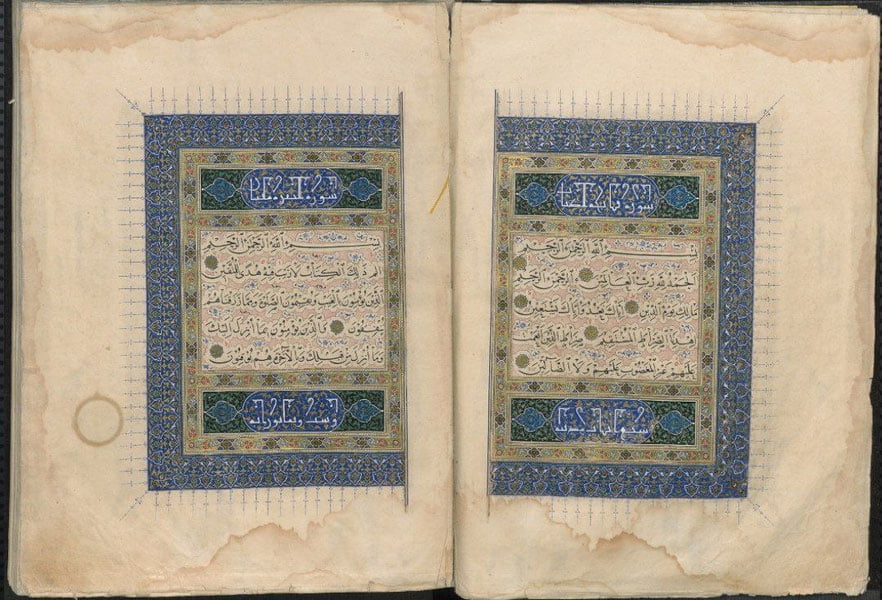 سورة فاتحة الكتاب
بسم الله الرحمن الرحيم
الحمد لله رب العالمين الرحمن الرحيم
مالك يوم الدين اياك نعبد واياك نستعين
اهدنا الصراط المستقيم صراط الذين انعمت
عليهم غير المغضوب عليهم ولا الضالين
سبع ايات
سورة البقرة مائتان
بسم الله الرحمن الرحيم
الم ذلك الكتاب لا ريب فيه هدى للمتقين
الذين يؤمنون بالغيب ويقيمون الصلوة ومما رزقناهم
ينفقون والذين يؤمنون بما انزل اليك
وما انزل من قبلك وبالآخرة هم يوقنون
وست وثمانون اية